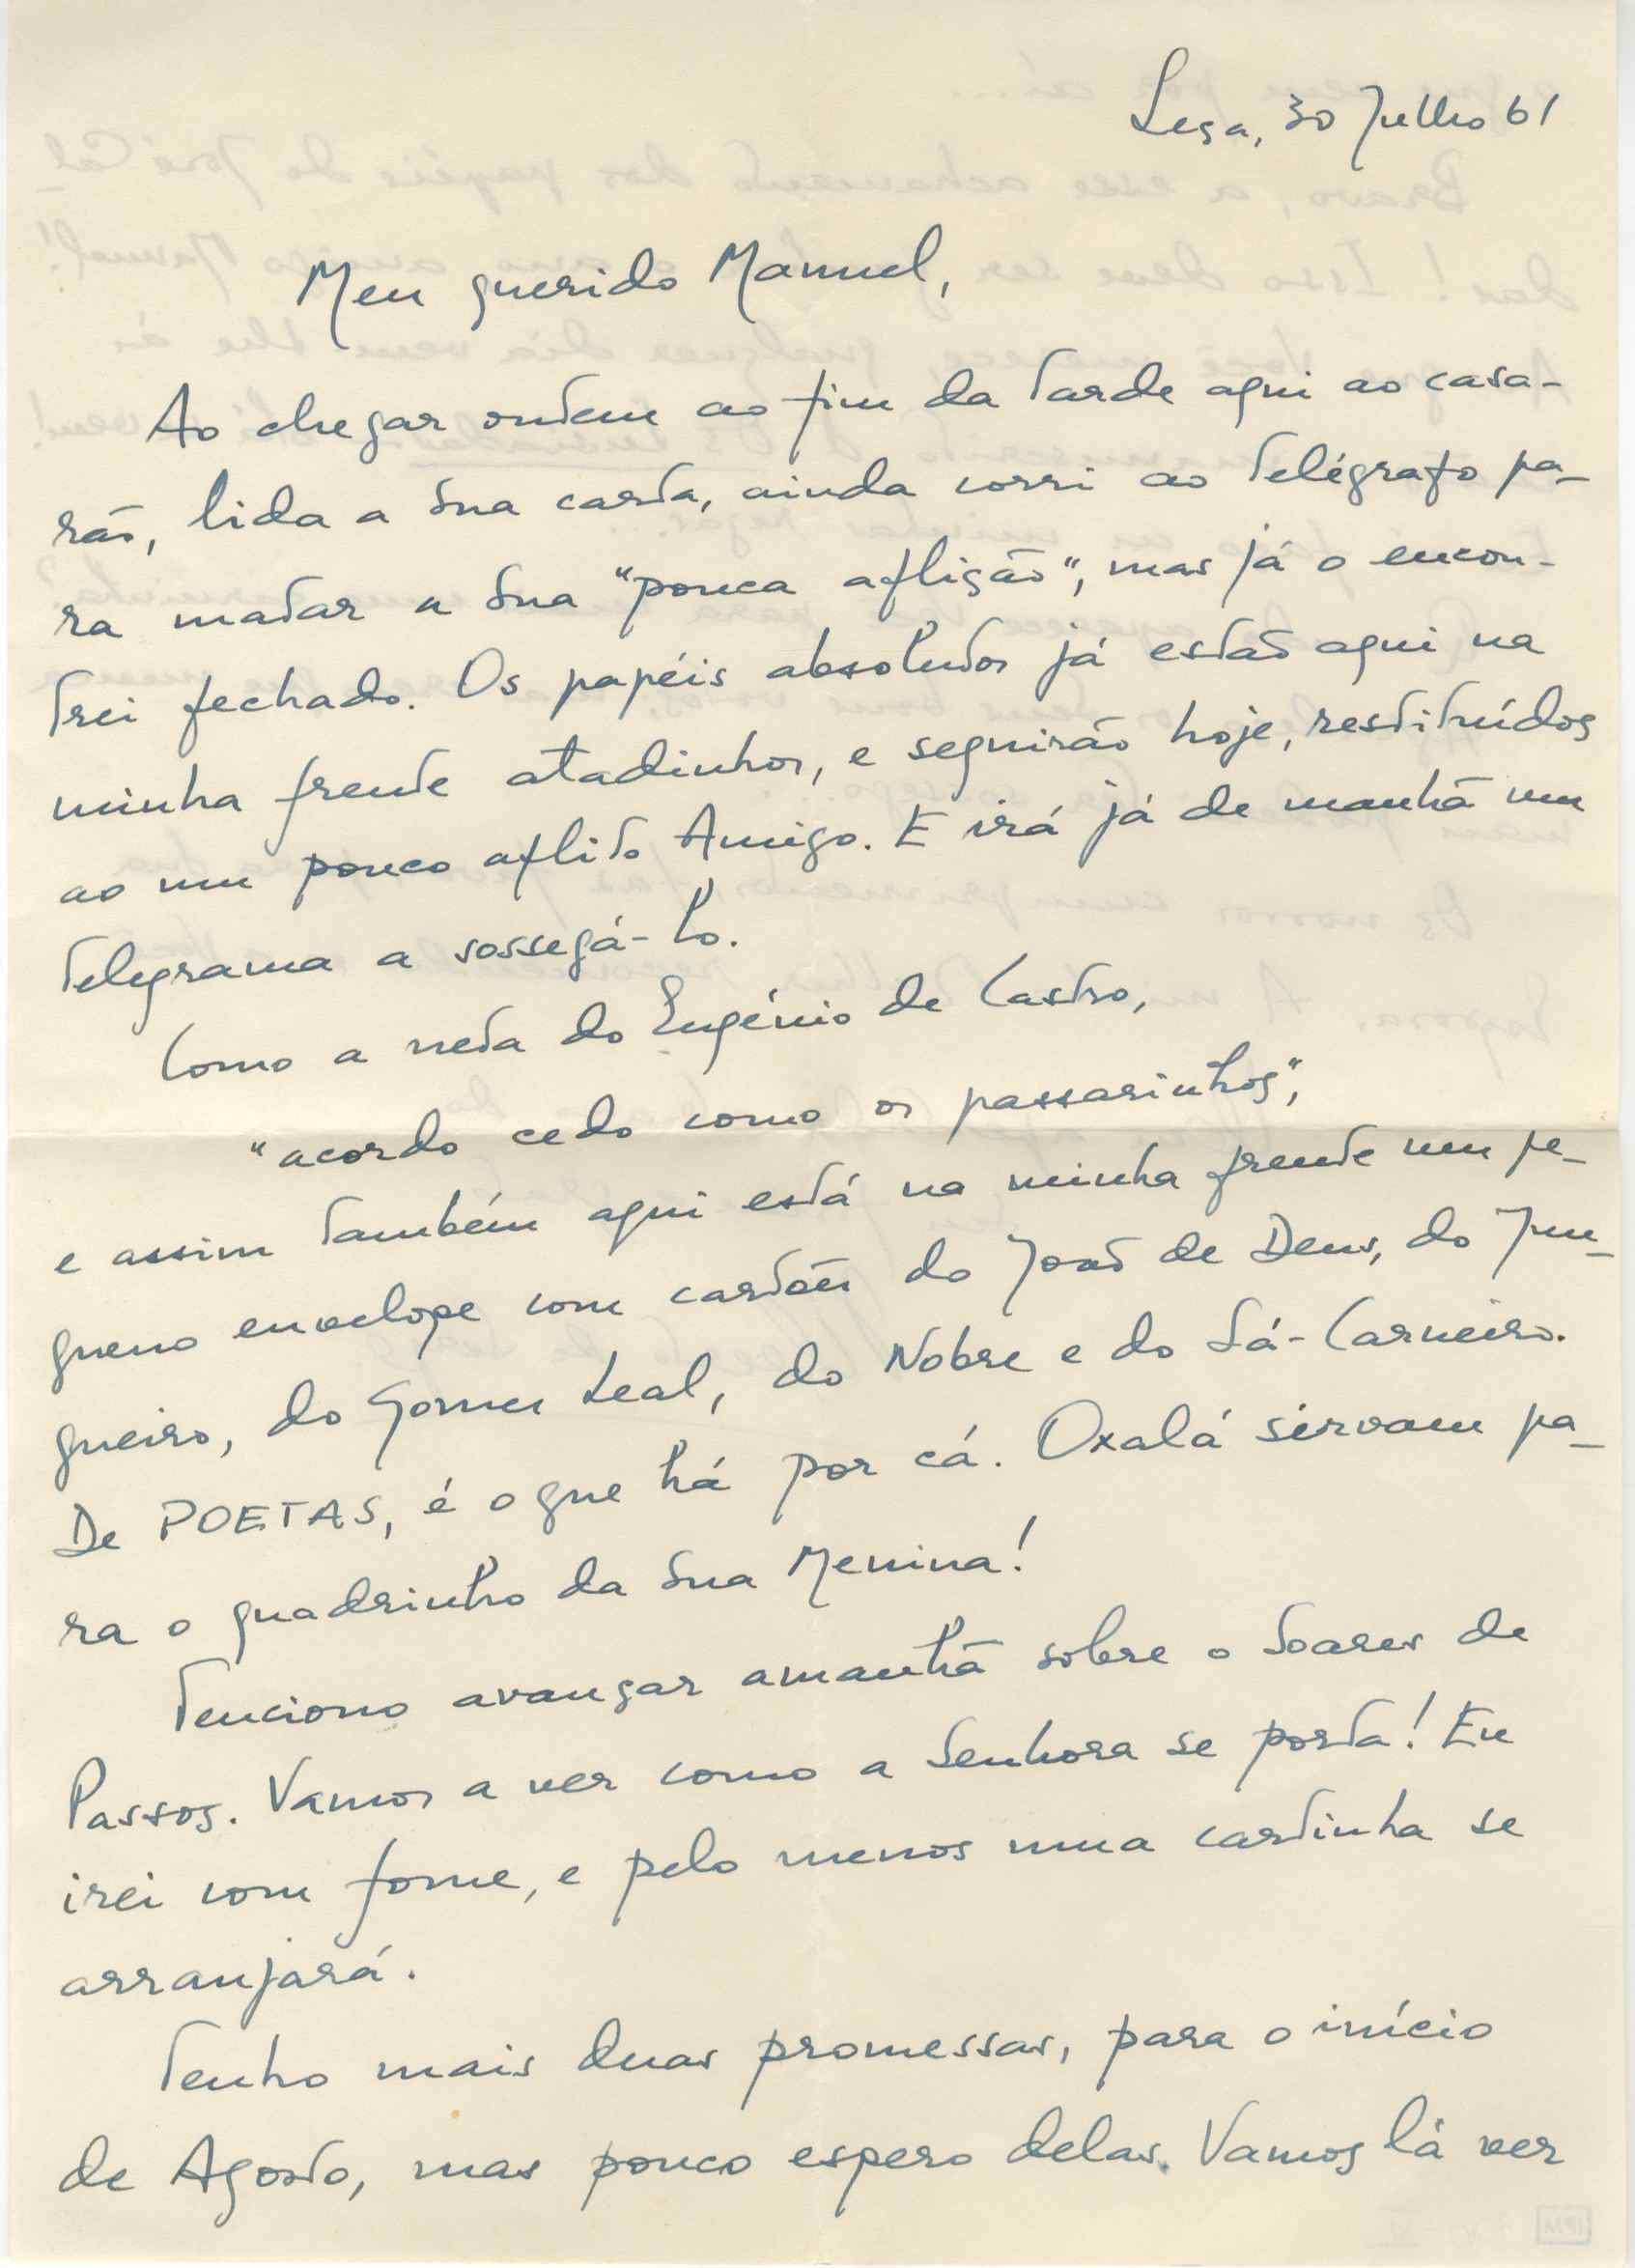 Leça, 30 Julho 61
Meu querido Manuel,
Ao chegar ontem ao fim da tarde aqui ao casa-
rão, lida a sua carta, ainda corri ao telégrafo pa-
ra matar a sua "pouca aflição", mas já o encon-
trei fechado. Os papéis absolutos já estão aqui na
minha frente atadinhos, e seguirão hoje, restituídos
ao um pouco aflito Amigo. E irá já de manhã um
telegrama a sossegá-lo.
Como a neta do Eugénio de Castro,
"acordo cedo como os passarinhos",
e assim também aqui está na minha frente um pe-
queno envelope com cartões do João de Deus, do Jun-
queiro, do Gomes Leal, do Nobre e do Sá-Carneiro.
De POETAS, é o que há por cá. Oxalá sirvam pa-
ra o quadrinho da sua Menina!
Tenciono avançar amanhã sobre o Soares de
Passos. Vamos a ver como a Senhora se porta! Eu
irei com fome, e pelo menos uma cartinha se
arranjará.
Tenho mais duas promessas, para o início
de Agosto, mas pouco espero delas. Vamos lá ver